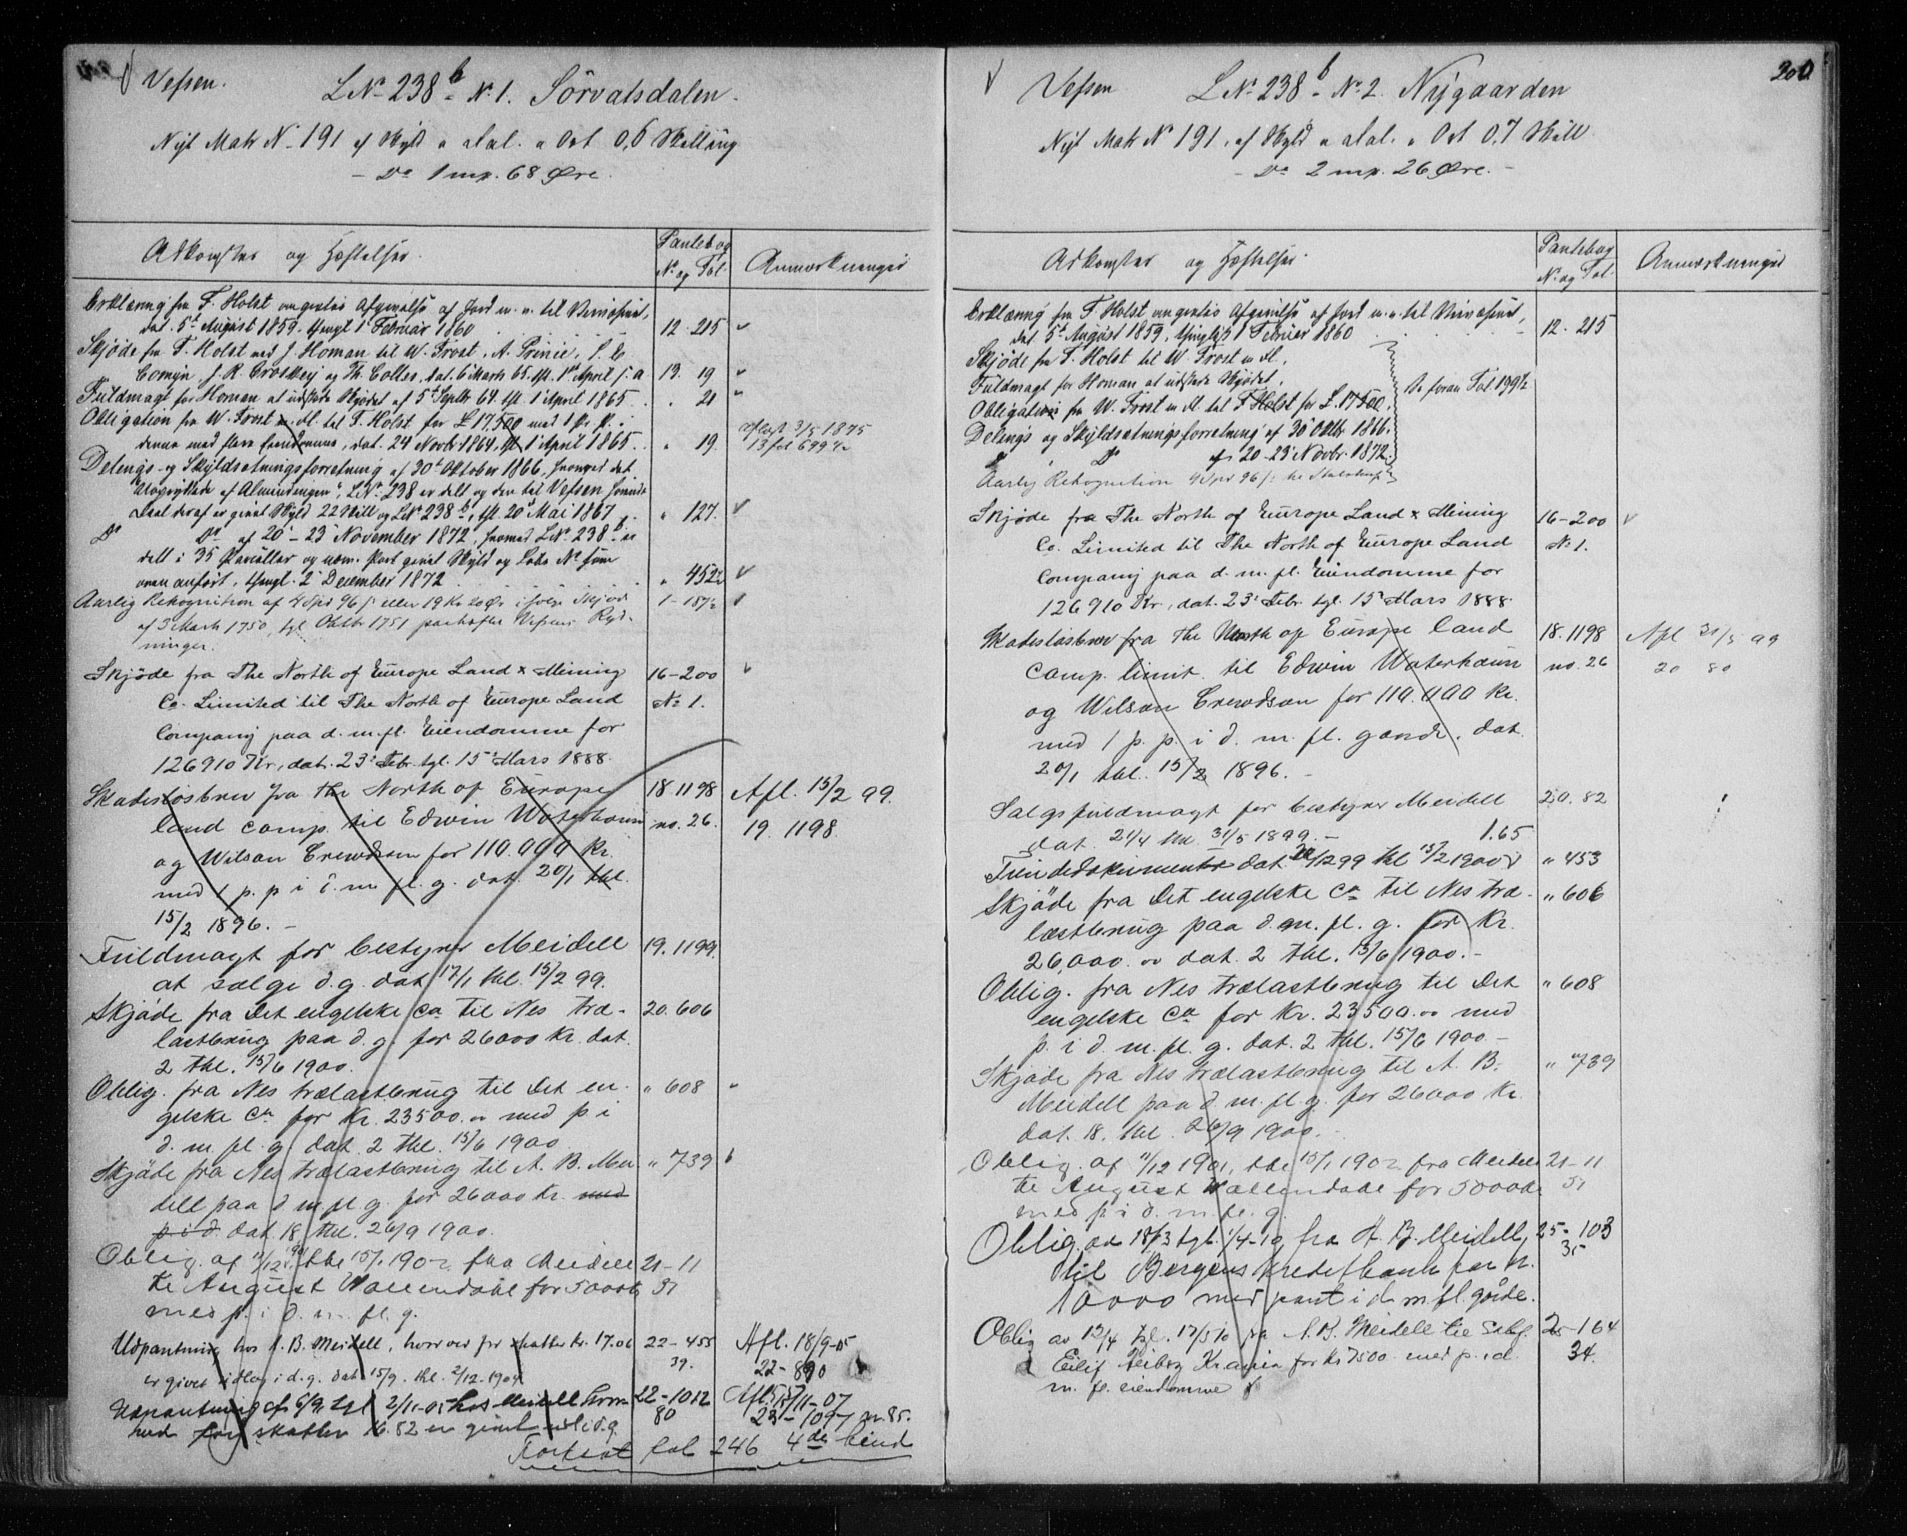 Vefsen. LNo 238 b No 1. Sörvatsdalen.
Nyt Matr No 191 af Skyld " Dal. " Ort 0,6 Skilling
- Do 1 mk. 68 Øre.
Adkomster og Hæftelser.
Pantebog
No og Fol.
Anmærkninger
Erklæring fra F. Holst angaaende Afgivelse af Jord m. v. til Veivæsenet,
dat. 5t August 1859. thingl 1 Februar 1860 12. 215
Skjøde fra F. Holst med J. Homan til W. Frost, A. Prinie,
Comyn J. R. Croskey og Th. Colles, dat. 6 Marts 65. thl. 1ste April s. a 13. 19
Fuldmagt for Homan at udstede Skjødet af 5t Septbr 64 thl. 1 April 1865 " 21
Obligation fra W. Frost m. Fl. til F. Holst for £ 17,500 med 1 Pr. P. i
denne med flere Eiendomme, dat. 24 Novbr 1864. thl 1 April 1865. " 19.
Aflyst 3/5 1875
13 fol 699 1/2
Delings- og Skyldsætningsforretning af 30t Oktober 1866, hvorved det
Uopryttede af Almindingen", LNo 238 er delt og den til Vefsen hørende
Deel deraf er givet Skyld 22 Skill og LNo 238 b, thl 20 Mai 1867 " 127.
Do Do af 20 - 23 November 1872, hvorved LNo 238 b er
delt i 35 Parceller og nærv. Part givet Skyld og Løbe No som
oven anført, thingl. 2 December 1872 " 452 1/2
Aarlig Rekognition af 4 Spd 96 s eller 19 Kr 20 Ør. i følge Skjøde
af 3 Marts 1750, tgl Oktbr 1751 paahefter Vefsens Ryd-
ninger.
1-187 1/2
Skjøde fra The North of Europe Land & Mining 16-200
Co. Limited til The North of Europe Land No 1.
Company paa d. m. fl. Eiendomme for
126910 Kr, dat. 23 Febr. tgl. 15 Mars 1888.
Skadesløsbrev fra the North of Europe 18 1198 Afl. 15/2 99.
land comp. til Edwin Waterhouse no. 26. 19. 1198.
og Wilson Crewdson for 110.000 kr.
med 1 p. p i d. m fl. g. dat. 20/1 thl.
15/2 1896. -
Fuldmagt for bestyrer Meidell 19. 1199.
at sælge d. g. dat 17/1 thl. 15/2 99.
Skjøde fra Det engelske Co til Nes træ- 20. 606
lastbrug paa d. g. for 26000 kr. dat.
2 thl. 15/6 1900.
Oblig. fra Nes trælastbrug til Det en- " 608
gelske Co for kr. 23500.00 med p i
d. m fl. g dat. 2 thl. 15/6 1900
Skjøde fra Nes trælastbrug til A. B. Mei " 739
dell paa d m fl g. for 26000 kr. med
p i d dat. 18 thl. 26/9 1900.
Oblig. af 11/12 1901 thl 15/1 1902 fra Meidell 21-11
til August Wallendahl for 5000 kr 51
med p. i d. m. fl. g.
Udpantning hos A. B. Meidell, hvorved for skatter kr. 17.06 22-455 Afl. 18/9-05
er givet udlæg i d. g. dat 15/9. thl. 2/12-1904 39. 22-890
Udpantning af 6/9 tgl 2/11-05 hos Meidell hvor- 22-1012 Afl. 15/11-07
ved for skatter 16.52 er givet udl i d. g 80 23-1097 nr. 85.
Fortsat fol 246 4de bind

200
Vefsen LNo 238 b No 2. Nygaarden
Nyt Matr No 191. af Skyld " Dal. " Ort 0,7 Skill
- Do 2 mk. 26 Øre. -
Adkomster og Hæftelser.
Pantebog
No og Fol.
Anmærkninger
Erklæring fra F. Holst angaaende Afgivelse af Jord m. v. til Veivæsenet,
dat. 5t August 1859, thinglyst 1 Februar 1860 12. 215
Skjøde fra F. Holst til W. Frost m Fl.
Fuldmagt for Homan at udstede Skjødet.
Obligation fra W. Frost m Fl til F Holst for £. 17500.
Se foran Fol 199 1/2
Delings og Skyldsætningsforretning af 30 Oktbr 1866.
Do Do af 20-23 Novbr. 1872.
Aarlig Rekognition 4 Spd 96 s
Skjøde fra The North of Europe Land & Mining 16-200
Co. Limited til The North of Europe Land No 1.
Company paa d. m. fl. Eiendomme for
126910 Kr, dat. 23 Febr. tgl. 15 Mars 1888.
Skadesløsbrev fra the North of Europe land 18. 1198 Afl 31/5 99
comp. limit. til Edwin Waterhouse no. 26 20 80
og Wilson Crewdson for 110.000 kr.
med 1 p. p. i d. m. fl. gaarde. dat.
20/1 thl. 15/2 1896. -
Salgsfuldmagt for bestyrer Meidell 20. 82
dat. 21/4 thl 31/5 1899. - 1.65
Fundedokumenter dat 12 99 thl 15/2 1900 " 453
Skjøde fra Det engelske Co til Nes træ- " 606
lastbrug paa d. m. fl. g. for kr.
26,000.00 dat. 2 thl. 15/6 1900. -
Oblig. fra Nes trælastbrug til Det " 608
engelske Co for kr. 23500.00 med
p. i d. m. fl. g. dat. 2 thl. 15/6 1900 -
Skjøde fra Nes trælastbrug til A. B. " 739
Meidell paa d m. fl g. for 26000 kr.
dat. 18. thl. 26/9 1900. -
Oblig. af 11/12 1901, thl 15/1 1902 fra Meidell 21-11
til August Wallendahl for 5000 kr 51
med p i d. m. fl. g.
Oblig. av 18/3 tgl. 1/4-10 fra A. B. Meidell 25-103
til Bergens Kreditbank for kr. 35
10000 med pant i d. m fl. gårde.
Oblig av 12/4 tgl. 17/5 10 fra A. B. Meidell til 25-164
Eilif Krania for kr 7500 med p. i d. 34.
m. fl. eiendomme